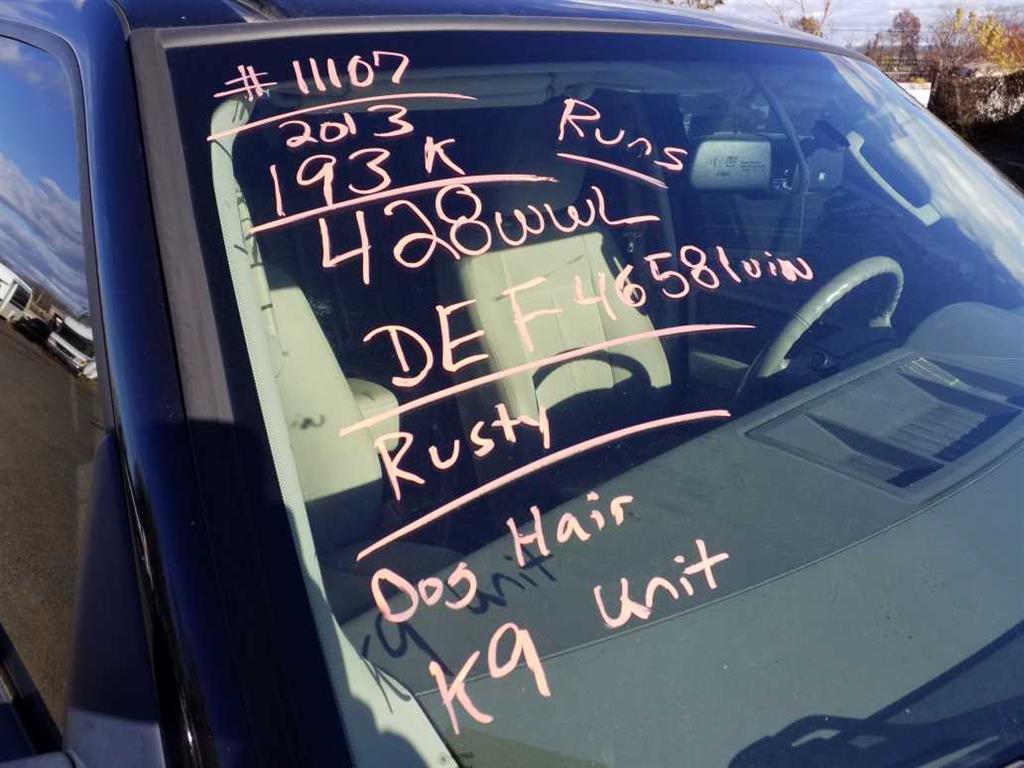 # 11107
2013
193K
Runs
428WWL
DEF 46581 vin
Rusty
Dog Hair
K9 Unit